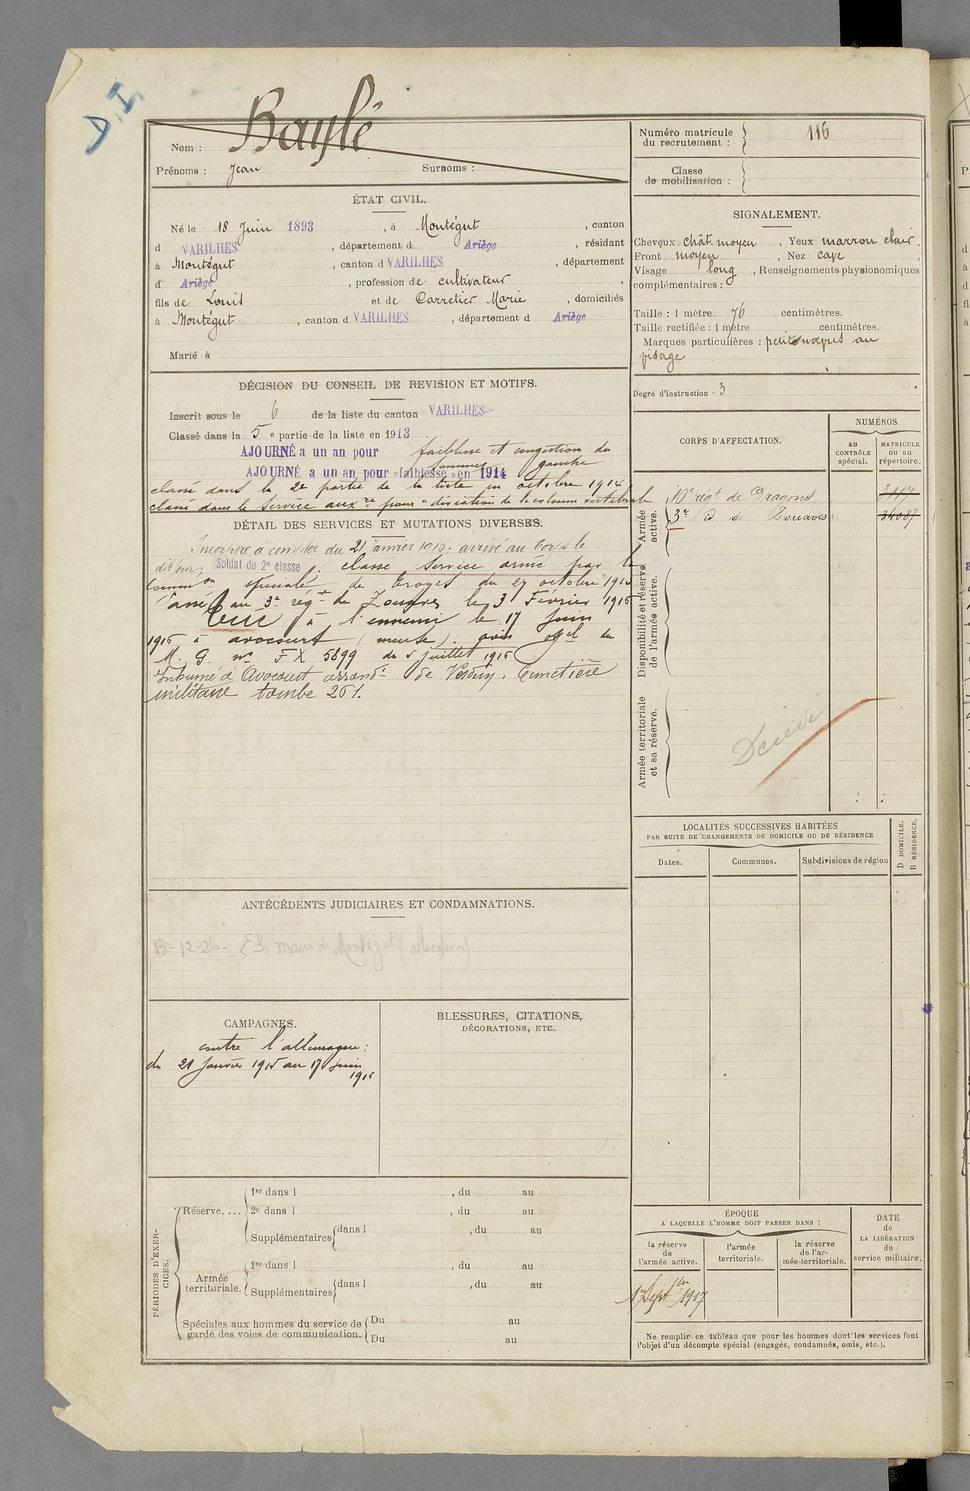 D. I.
Nom : Baylé
Prénoms : Jean Surnoms :
Numéro matricule
du recrutement : 116
Classe
de mobilisation :
ÉTAT CIVIL.
Né le 18 Juin 1893, à Montégut, canton
d VARILHES, département d Ariège, résidant
à Montégut, canton d VARILHES, département
d Ariège, profession de cultivateur,
fils de Louis et de Carretier Marie, domiciliés
à Montégut, canton d VARILHES, département d Ariège
Marié à
SIGNALEMENT.
Cheveux chât. moyen, Yeux marron clair,
Front moyen, Nez cave,
Visage long, Renseignements physionomiques
complémentaires :
Taille : 1 mètre 76 centimètres.
Taille rectifiée : 1 mètre centimètres.
Marques particulières : petits nœvus au
visage
Degré d'instruction : 3
DÉCISION DU CONSEIL DE REVISION ET MOTIFS.
Inscrit sous le 6 de la liste du canton VARILHES
Classé dans la 5e partie de la liste en 1913
AJOURNÉ a un an pour faiblesse et congestion du
sommet gauche
AJOURNÉ a un an pour "faiblesse" en 1914
classé dans la 2e partie de la liste en octobre 1914
classé dans le Service auxre pour "déviation de la colonne vertébrale
DÉTAIL DES SERVICES ET MUTATIONS DIVERSES.
Incorporé à compter du 21 janvier 1915, arrivé au Corps le
dit jour, Soldat de 2e classe. classé service armé par la
Common spéciale de Troyes du 27 octobre 1915
Passé au 3e régt de Zouaves le 3 Février 1916
Tué à l'ennemi le 17 Juin
1916 à avocourt (meuse). avis offel du
M. G. no FX 5899 du 5 juillet 1916
Inhumé à Avocourt arrondt de Verdun. Cimetière
militaire tombe 261.
CORPS D'AFFECTATION.
NUMÉROS
au
CONTRÔLE
spécial.
MATRICULE
ou au
répertoire.
Armée
active.
10e regt de Dragons 2117
3e d de Zouaves 34087
Disponibilité et réserve
de l'armée active.
Armée territoriale
et sa réserve.
Décédé
LOCALITÉS SUCCESSIVES HABITÉES
PAR SUITE DE CHANGEMENTS DE DOMICILE OU DE RÉSIDENCE
Dates.
Communes.
Subdivisions de région
D DOMICILE.
R RÉSIDENCE.
ANTÉCÉDENTS JUDICIAIRES ET CONDAMNATIONS.
maire de Montégut (allocation)
CAMPAGNES.
contre l'allemagne :
du 21 Janvier 1915 au 17 juin
1916
BLESSURES, CITATIONS,
DÉCORATIONS, ETC.
PÉRIODES D'EXER-
CICES.
Réserve....
1re dans l , du au
2e dans l , du au
Supplémentaires dans l , du au
Armée
territoriale.
1re dans l , du au
Supplémentaires dans l , du au
Spéciales aux hommes du service de
garde des voies de communication.
Du au
Du au
ÉPOQUE
A LAQUELLE L'HOMME DOIT PASSER DANS :
la réserve
de
l'armée active.
l'armée
territoriale.
la réserve
de l'ar-
mée territoriale.
DATE
de
LA LIBÉRATION
du
service militaire.
1er Septbre 1917
Ne remplir ce tableau que pour les hommes dont les services font
l'objet d'un décompte spécial (engagés, condamnés, omis, etc.).